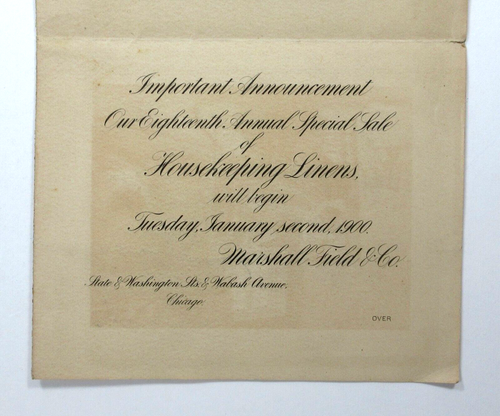 Important Announcement
Our Eighteenth Annual Special Sale
of
Housekeeping Linens,
will begin
Tuesday, January second, 1900.
Marshall Field & Co.
State & Washington Sts. & Wabash Avenue,
Chicago.
OVER